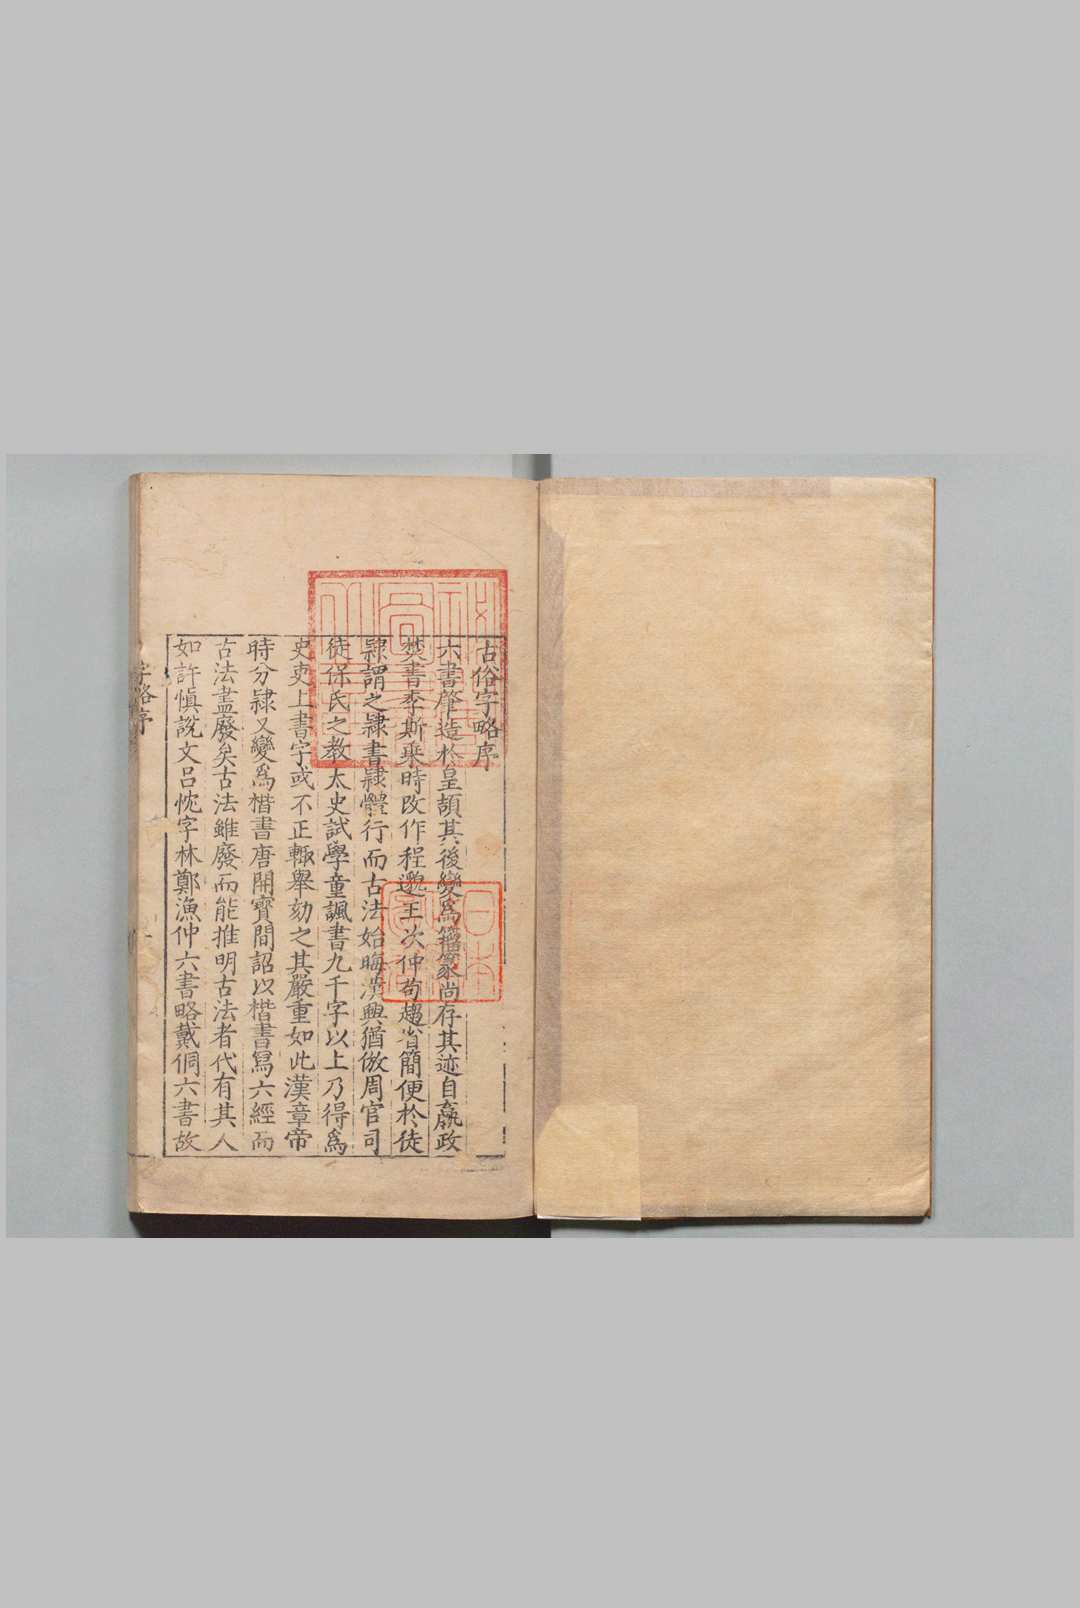 古俗字略序
六書肇造於皇頡其後變爲籀篆尚存其迹自嬴政
焚書李斯乘時改作程邈王次仲苟趨省簡便於徒
隸謂之隸書隸體行而古法始晦漢興猶倣周官司
徒保氏之教太史試學童諷書九千字以上乃得爲
史吏上書字或不正輙舉劾之其嚴重如此漢章帝
時分隸又變爲楷書唐開寶間詔以楷書寫六經而
古法盡廢矣古法雖廢而能推明古法者代有其人
如許愼說文呂忱字林鄭漁仲六書略戴侗六書故
字略序